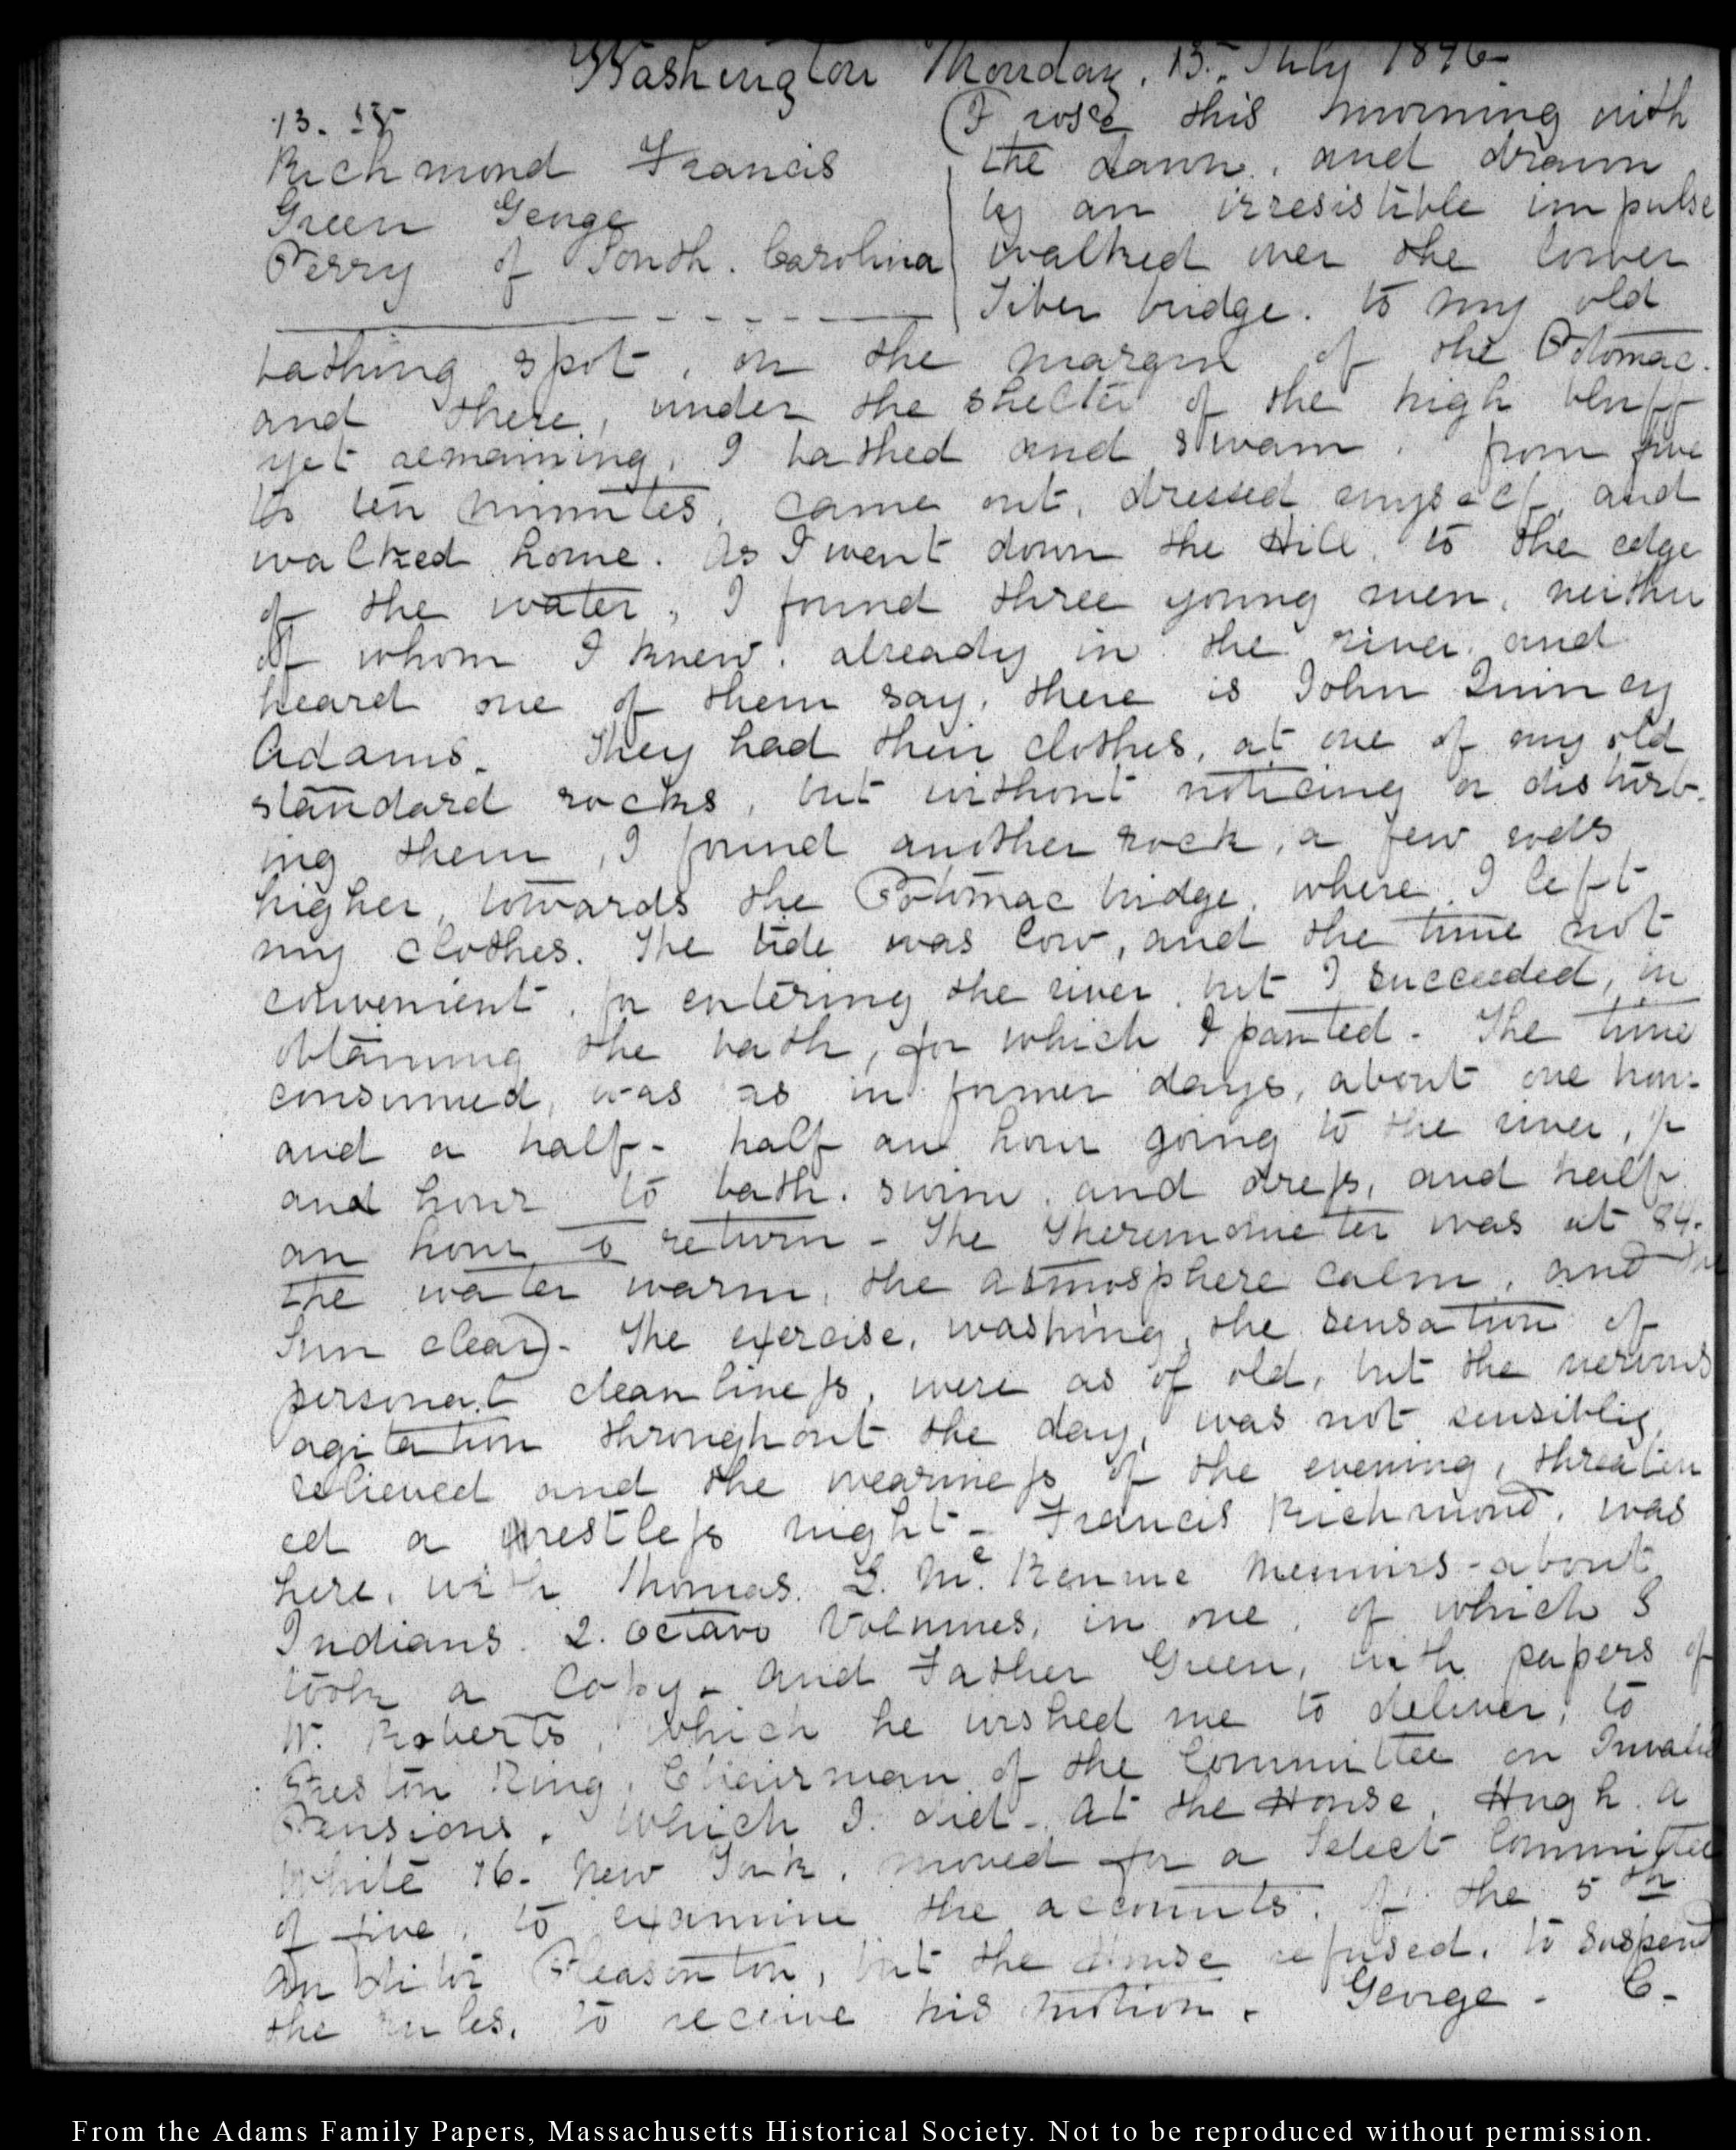 Washington Monday. 13. July 1846-
13. IV
Richmond Francis
Green George
Perry of South. Carolina
(I rose this morning with
the dawn, and drawn
by an irresistible impulse
walked over the lower
Tiber bridge. to my old
bathing spot, on the margin of the Potomac.
and there, under the shelter of the high bluff
yet remaining, I bathed and swam. from five
to ten minutes, came out, dressed myself, and
walked home. As I went down the Hill, to the edge
of the water, I found three young men, neither
of whom I knew. already in the river, and
heard one of them say, there is John Quincy
Adams. They had their clothes, at one of my old
standard rocks, but without noticing or disturb-
ing them, I found another rock, a few rods
higher, towards the Potomac bridge, where I left
my clothes. The tide was low, and the time not
convenient, for entering the river, but I succeeded, in
obtaining the bath, for which I panted - The time
consumed, was as in former days, about one hour
and a half - half an hour going to the river,
and hour to bath. swim, and dress, and half
an hour to return - The Theremometer was at 84.
the water warm, the atmosphere calm, and the
Sun clear) - The exercise, washing, the sensation of
personal cleanliness, were as of old, but the nervous
agitation throughout the day, was not sensibly
relieved and the weariness of the evening, threaten
ed a restless night - Francis Richmond, was
here, with Thomas. L. Mc. Kennie Memoirs - about
Indians. 2. octavo Volumes, in one, of which I
took a Copy - and Father Green, with papers of
W. Roberts, which he wished me to deliver, to
Preston King, Chairman of the Committee on Invalid
Pensions, which I did - At the House, Hugh. A
White 16. New York, moved for a Select Committee
of five, to examine the accounts, of the 5th
Auditor Pleasonton, but the House refused, to suspend
the rules, to receive his motion. George - C-
From the Adams Family Papers, Massachusetts Historical Society. Not to be reproduced without permission.